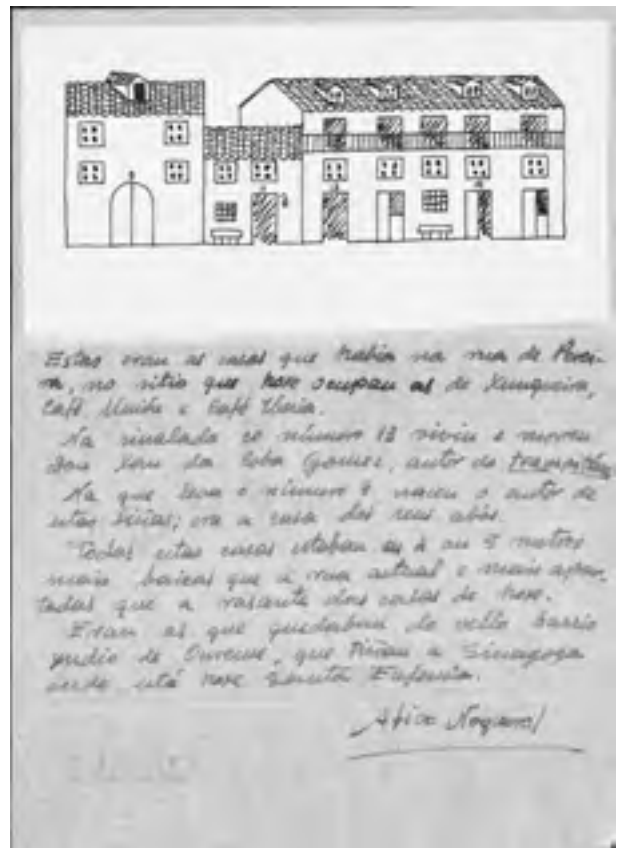 Estas eran as casas que había na rua de Perei-
ra, no sitio que hoxe ocupan as de Xunqueira,
Café Unión e Café Iberia.
Na sinalada co número 13 viviu e morreu
don Xan da Coba Gomez, autor do
Na que leva o número 9 naceu o autor de
estas liñas; era a casa dos seus abós.
Todas estas casas estaban 4 ou 5 metros
mais baixas que a rua actual e mais apar-
tadas que a rasante das casas de hoxe.
Eran as que quedaban do vello barrio
xudio de Ourense, que tiñan a Sinagoga
onde está hoxe Santa Eufemia.